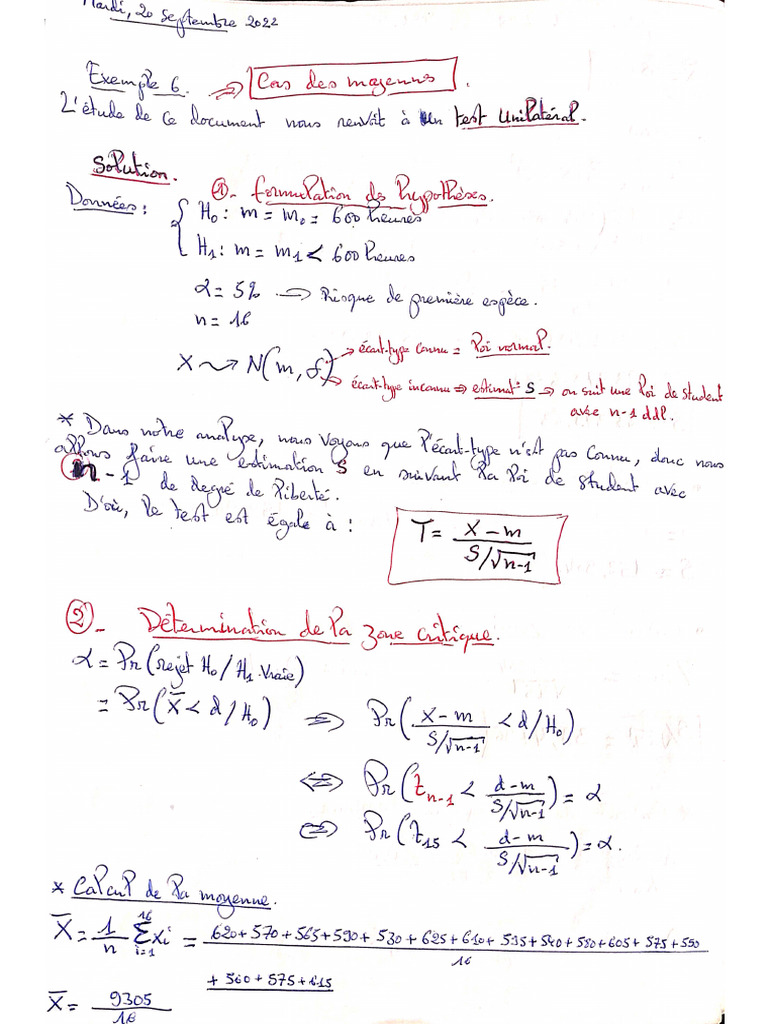 Mardi, 20 Septembre 2022
Exemple 6. => Cas des moyennes.
L'étude de ce document nous renvoit à un test Unilatéral.
Solution.
① - formulation des hypothèses.
Données : { H₀ : m = m₀ = 600 heures
H₁ : m = m₁ < 600 heures
α = 5% → Risque de première espèce.
n = 16
X ⤳ N(m, σ) → écart-type connu = loi normal.
→ écart-type inconnu => estimat° S → on suit une loi de student
avec n-1 ddl.
* Dans notre analyse, nous voyons que l'écart-type n'est pas connu, donc nous
allons faire une estimation S en suivant la loi de student avec
n-1 de degré de liberté.
D'où, le test est égale à : T = (X - m) / (S/√(n-1))
② - Détermination de la zone critique.
α = Pr(rejet H₀ / H₁ vraie)
= Pr(X̄ < d / H₀) => Pr((X - m) / (S/√(n-1)) < d / H₀)
<=> Pr(t_{n-1} < (d - m) / (S/√(n-1))) = α
<=> Pr(t₁₅ < (d - m) / (S/√(n-1))) = α.
* Calcul de la moyenne.
X̄ = 1/n Σ_{i=1}^{16} xi = (620 + 570 + 565 + 590 + 530 + 625 + 610 + 535 + 540 + 580 + 605 + 575 + 550
+ 560 + 575 + 615) / 16
X̄ = 9305 / 16